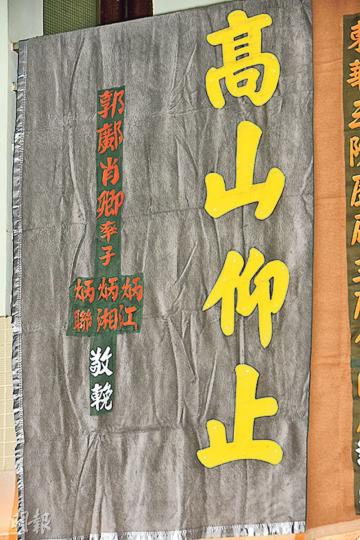 東華三院
高山仰止
郭鄺肖卿率子
炳江
炳湘
炳聯
敬輓
明報